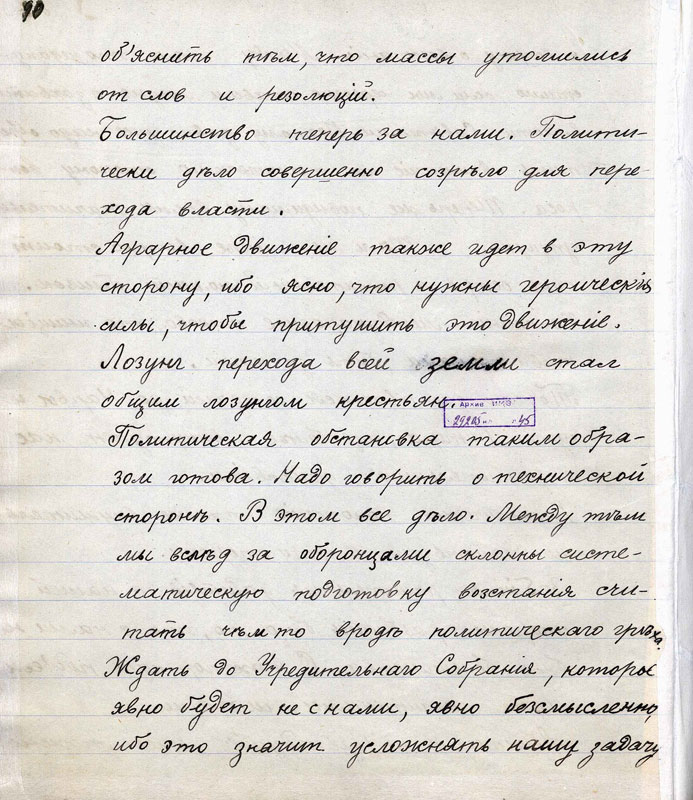 90
об'яснить тѣм, что массы утомились
от слов и резолюцій.
Большинство теперь за нами. Полити-
чески дѣло совершенно созрѣло для пере-
хода власти.
Аграрное движеніе также идет в эту
сторону, ибо ясно, что нужны героическія
силы, чтобы притушить это движеніе.
Лозунг перехода всей земли стал
общим лозунгом крестьян.
Архив ИМЭ
29205 45
Политическая обстановка таким обра-
зом готова. Надо говорить о технической
сторонѣ. В этом все дѣло. Между тѣм
мы вслѣд за оборонцами склонны систе-
матическую подготовку возстанія счи-
тать чѣм то вродѣ политическаго грѣха.
Ждать до Учредительнаго Собранія, которое
явно будет не с нами, явно безсмысленно,
ибо это значит усложнять нашу задачу